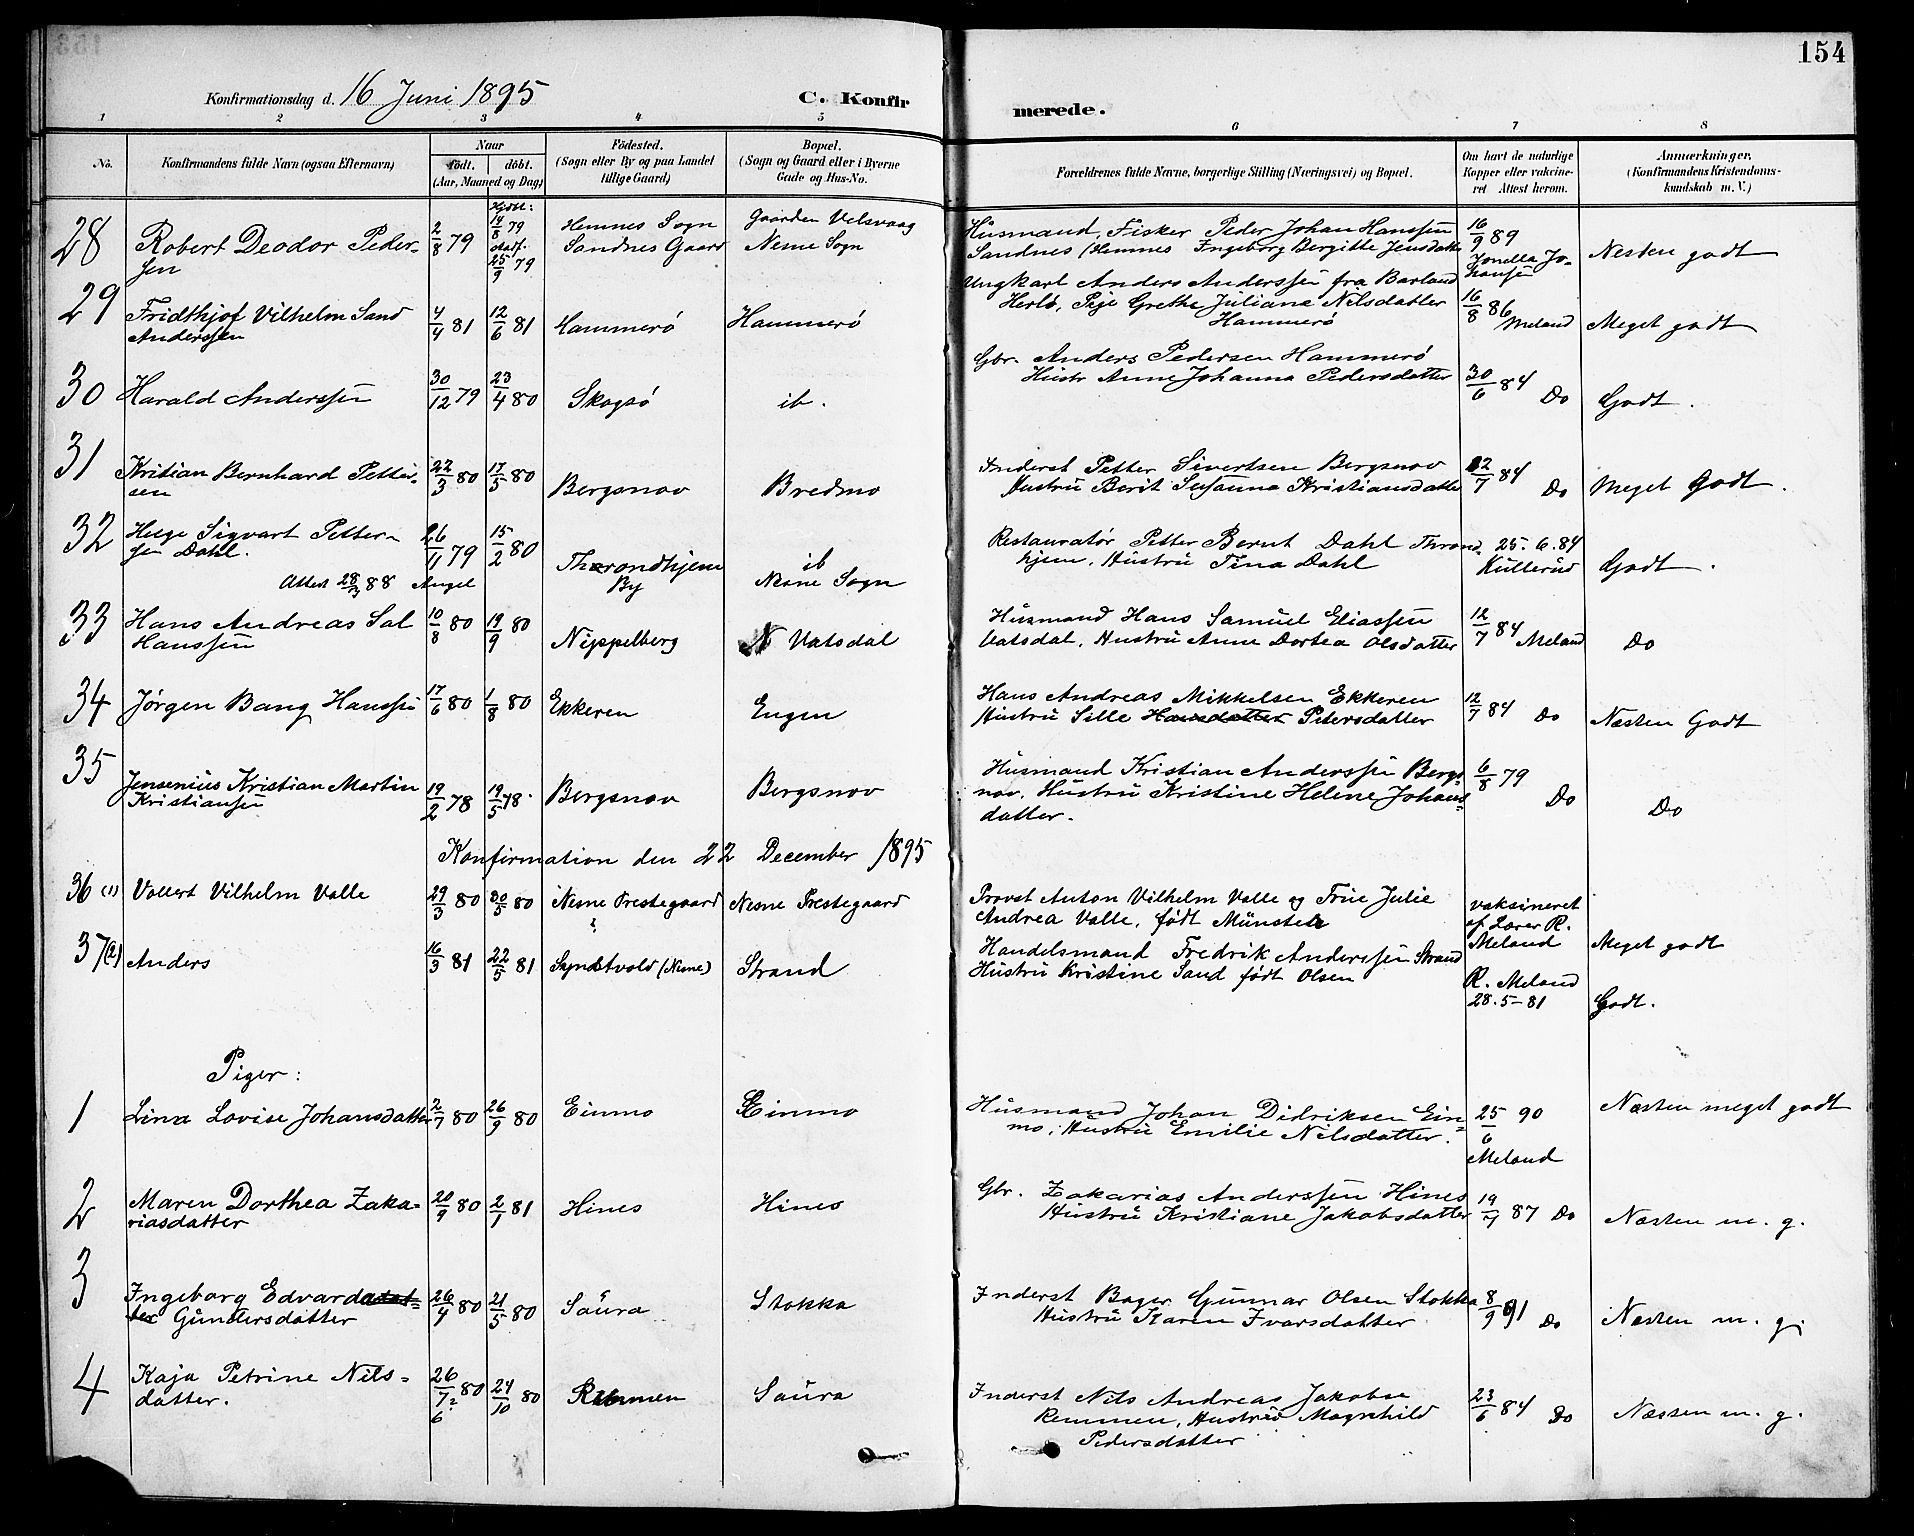 154
Konfirmationsdag d. 16 Juni 1895
C. Konfirmerede.
1 2 3 4 5 6 7 8
No. Konfirmandens fulde Navn (ogsaa Efternavn) Naar født. døbt. (Aar, Maaned og Dag) Fødested. (Sogn eller By og paa Landet tillige Gaard) Bopæl. (Sogn og Gaard eller i Byerne Gade og Hus-No. Forældrenes fulde Navne, borgerlige Stilling (Næringsvei) og Bopæl. Om havt de naturlige Kopper eller vaccineret Attest herom. Anmærkninger. (Konfirmandens Kristendomskundskab m. V.)
28 Robert Deodor Peder- 2/8 79 Hjdt: 14/8 79 Hemnes Sogn Gaarden Velsvaag Husmand, Fisker Peder Johan Hanssen 16/9 89
sen 25/9 79 Sandnes Gaard Nesne Sogn Sandnes (Hemnes Ingeborg Bergitte Jensdatter Jonella Johansen Nesten godt
29 Fridthjof Vilhelm Sand 4/4 81 12/6 81 Hammerø Hammerø Ungkarl Anders Anderssen fra Barland
Anderssen Herlø, Pige Grethe Juliane Nilsdatter 16/8 86
Hammerø Meland Meget godt
30 Harald Anderssen 30/12 79 23/4 80 Skogsø ib. Gbr. Anders Pedersen Hammerø
Hustr Anne Johanna Pedersdatter 30/6 84 Do Godt.
31 Kritian Bernhard Petter- 22/3 80 17/5 80 Bergsnov Bredmo Inderst Petter Sivertsen Bergsnov
sen Hustru Berit Susanna Kristiansdatter 12/7 84 Do Meget Godt.
32 Helge Sigvart Petter- 26/11 79 15/2 80 Throndhjem ib Restauratør Petter Bernt Dahl Thrond- 25. 6. 84
sen Dahl. By Nesne Sogn hjem, Hustru Tina Dahl Kullerud Godt.
Attest 28/3 88 Angel
33 Hans Andreas Sal 10/8 80 19/9 80 Nippelberg N Vatsdal Husmand Hans Samuel Eliassen 12/7 84
Hanssen Vatsdal, Hustru Anne Dortea Olsdatter Meland Do
34 Jørgen Bang Hanssen 17/6 80 1/8 80 Ekkeren Engen Hans Andreas Mikkelsen Ekkeren 12/7 84
Hustru Sille Hansdatter Petersdatter Do Næsten Godt
35 Jensenius Kristian Martin 19/2 78 19/5 78. Bergsnov Bergsnov Husmand Kristian Anderssen Bergs- 6/8 79
Kristiansen nov, Hustru Kristine Helene Johans- Do Do
datter.
Konfirmation den 22 December 1895
36 (1) Vollert Vilhelm Valle 29/3 80 30/5 80 Nesne Prestegaard Nesne Prestegaard Provst Anton Vilhelm Valle og Frue Julie vaksineret
Andrea Valle, født Münster af Lærer R.
Meland Meget godt
37 (2) Anders 16/3 81 22/5 81 (Nesne) Strand Handelsmand Fredrik Anderssen Strand
Hustru Kristine Sand født Olsen R. Meland
28. 5-81 Godt.
Piger:
1 Lina Lovise Johansdatter 2/7 80 26/9 80 Einmo Einmo Husmand Johan Didriksen Ein- 25/6 90 Næsten meget godt
mo, Hustru Emilie Nilsdatter. Meland
2 Maren Dorthea Zaka- 20/9 80 2/1 81 Hines Hines Gbr. Zakarias Anderssen Hines 19/7 87
riasdatter Hustru Kristiane Jakobsdatter Do Næsten m. g.
3 Ingeborg Edvardadat- 26/4 80 21/5 80 Saura Stokka Inderst Bager Gunnar Olsen Stokka 8/9 91
ter Gundersdatter Hustru Karen Ivarsdatter Do Næsten m. g.
4 Kaja Petrine Nils- 26/7? 6 80 24/10 80 Remmen Saura Inderst Nils Andreas Jakobse 23/6 84
datter. Remmen, Hustru Magnhild Do Næsten m. g.
Pedersdatter